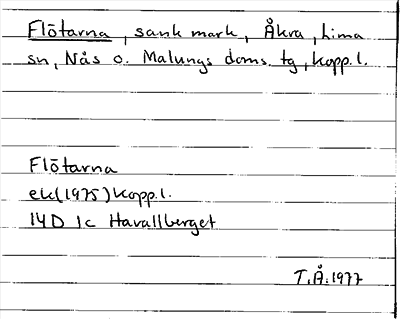 Flötarna, sank mark, Åkra, Lima
sn, Nås o. Malungs doms. tg, Kopp. l.
Flötarna
ek (1975) Kopp. l.
14D 1c Havallberget
T.Å. 1977